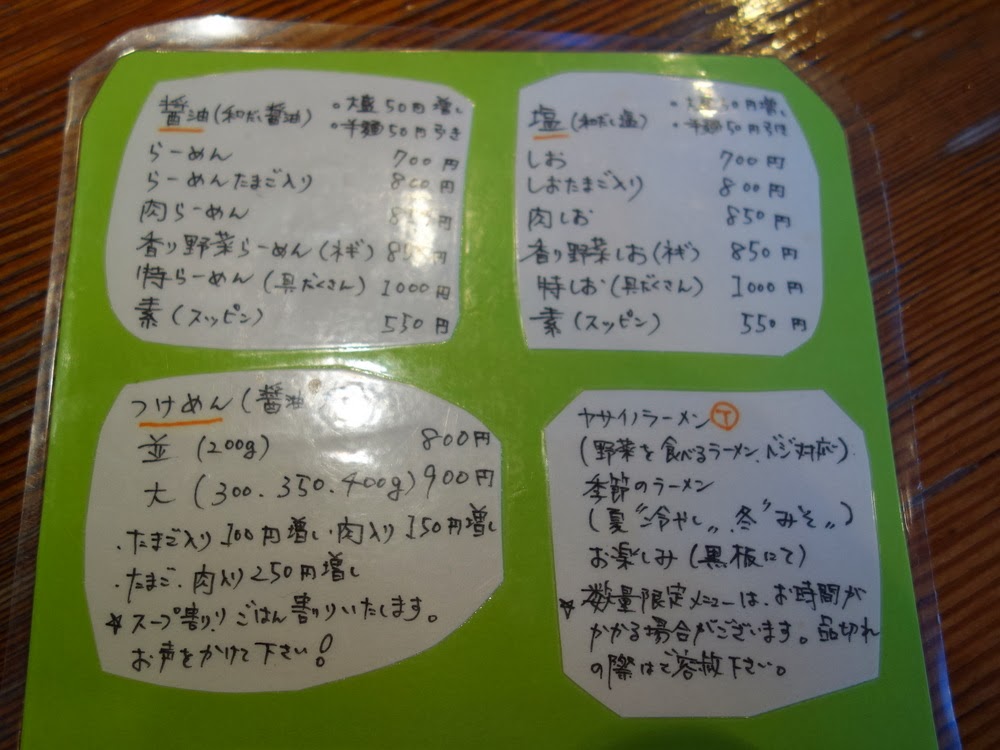 醤油(和だし醤油)
・大盛50円増し
・半麺50円引き
らーめん 700円
らーめんたまご入り 800円
肉らーめん 850円
香り野菜らーめん(ネギ) 850円
特らーめん(具だくさん) 1000円
素(スッピン) 550円
塩(和だし塩)
・大盛50円増し
・半麺50円引き
しお 700円
しおたまご入り 800円
肉しお 850円
香り野菜しお(ネギ) 850円
特しお(具だくさん) 1000円
素(スッピン) 550円
つけめん(醤油
並(200g) 800円
大(300.350.400g) 900円
・たまご入り100円増し・肉入り150円増し
・たまご、肉入り250円増し
☆スープ割り、ごはん割りいたします。
お声をかけて下さい!
ヤサイノラーメン T
(野菜を食べるラーメン、ベジ対応)
季節のラーメン
(夏"冷やし"、冬"みそ")
お楽しみ(黒板にて)
☆数量限定メニューは、お時間が
かかる場合がございます。品切れ
の際はご容赦下さい。